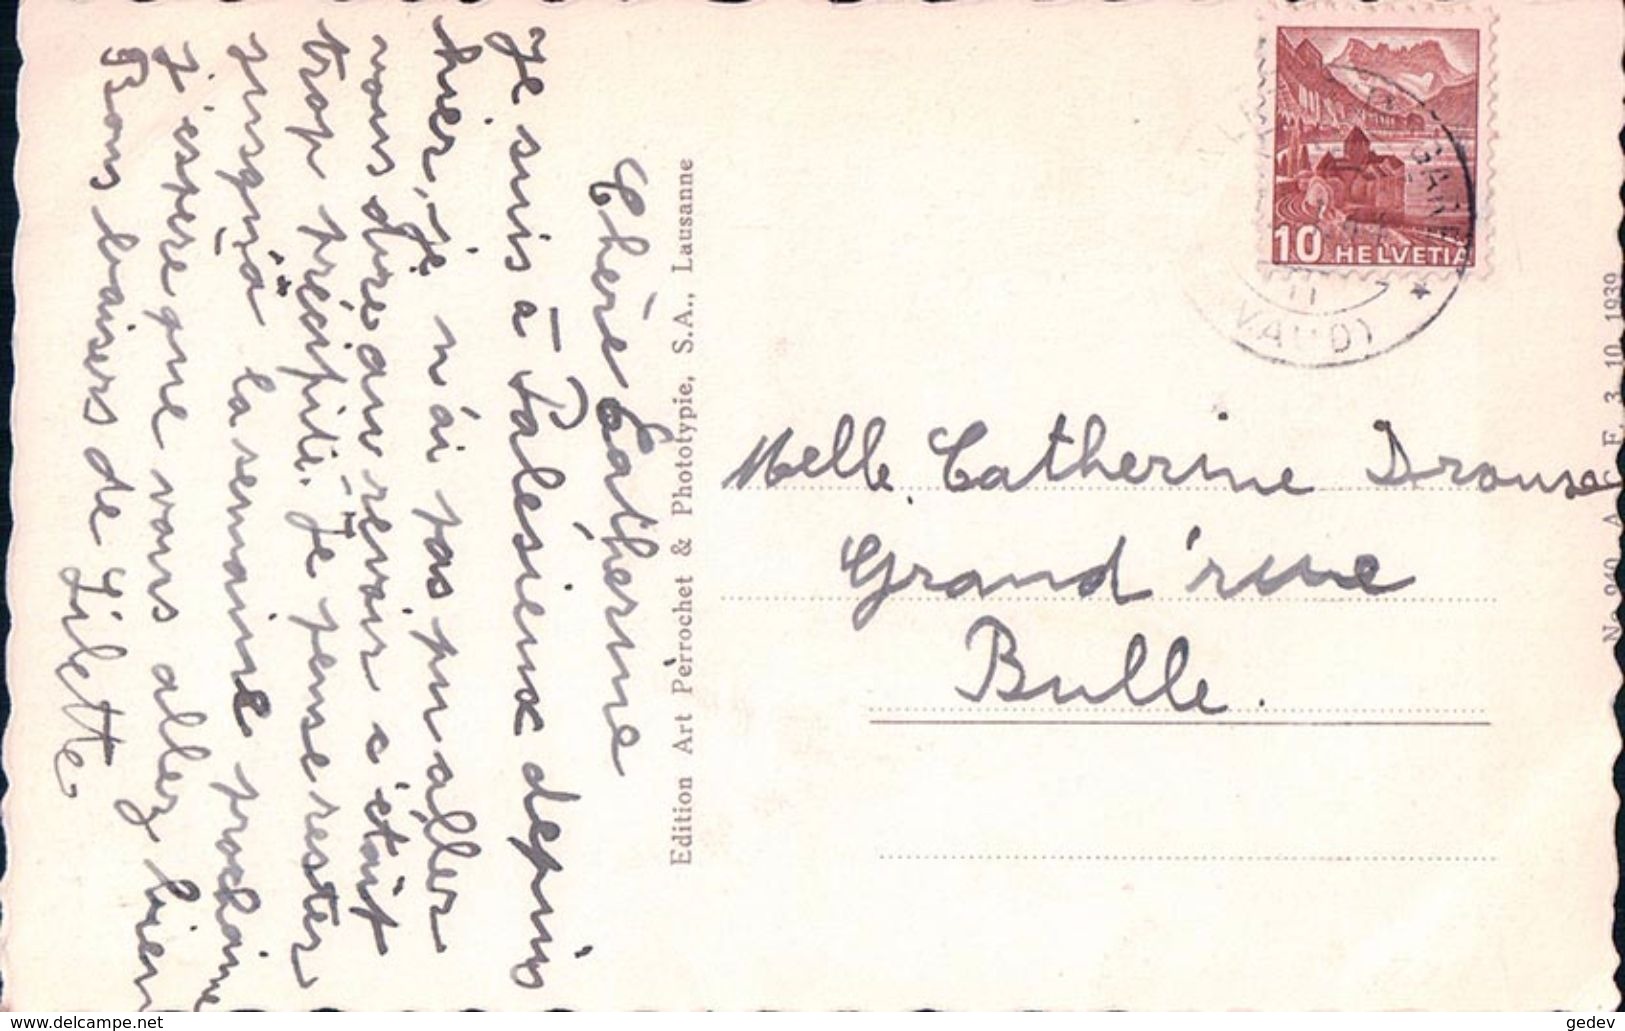 Chère Catherine
Je suis à Palésieux depuis
hier, je n'ai pas pu aller
vous dire au revoir c'était
trop précipité. Je pense rester
jusqu'à la semaine prochaine
J'espère que vous allez bien
Bons baisers de Lilette.
Edition Art Perrochet & Phototypie, S.A., Lausanne
10 HELVETIA
GARE
(VAUD)
Melle Catherine
Grand'rue
Bulle.
No 940 A c F. 3. 10. 1939
www.delcampe.net
gedev